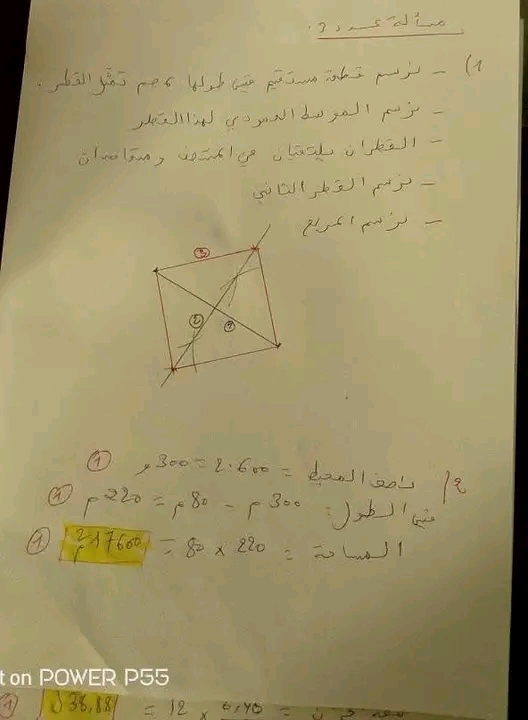 مسألة عدد 2.
1) - نرسم قطعة مستقيم قيس طولها صم تمثّل القطر.
- نرسم الموسط العمودي لهذا القطر
- القطران يلتقيان في المنتصف ومتقاصان
- نرسم القطر الثاني
- نرسم المربع
3
2
1
2/ نصف المحيط = 600:2 = 300م 1
قيس الطول: 300م - 80م = 220م 1
المساحة = 220 × 80 = 17600م² 1
t on POWER P55
= 12 × = 38,88 1